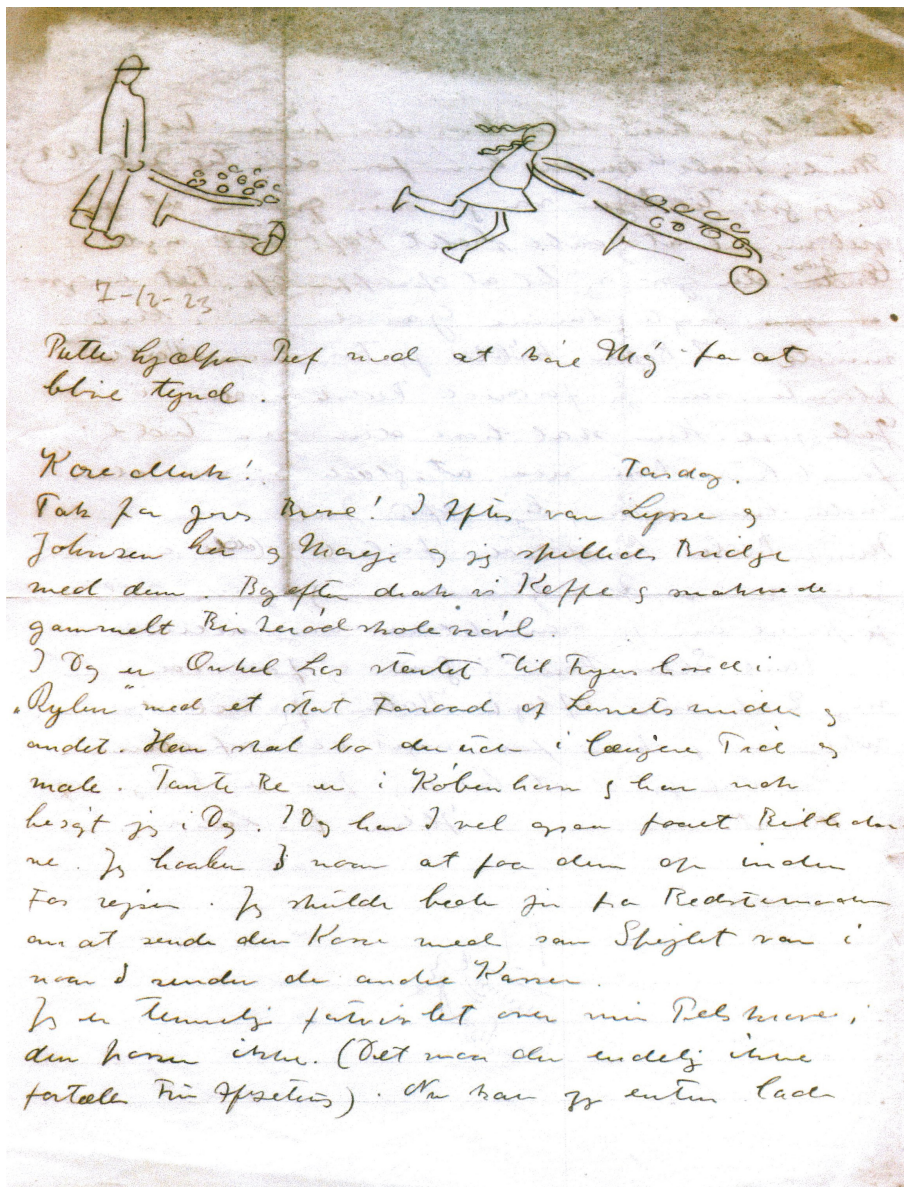 7-12-23
Putte hjælper Bef med at köre Mög for at
blive tynd.
Kære Muk! Torsdag.
Tak for jeres Breve! I Aftes var Lysse og
Johnsen her og Marje og jeg spillede Bridge
med dem. Bagefter drak vi Kaffe og snakkede
gammelt Birkerød skole
I Dag er Onkel Las stentet til Fyens Hoved i
"Rylen" med et stort Forraad af Lerretsruller og
andet. Han skal bo derude i længere Tid og
male. Tante Be er i København og har nok
besøgt jer i Dag. I Dag har I vel ogsaa faaet Billeder
ne. Jeg haaber I naar at faa dem op inden
Far rejser. Jeg skulde bede jer fra Bedstemoder
om at sende den Kasse med som Spejlet var i
naar I sender de andre Kasser.
Jeg er temmelig fortvivlet over min Pelskrave,
den passer ikke. (Det maa du endelig ikke
fortælle Fru ). Nu kan jeg enten lade